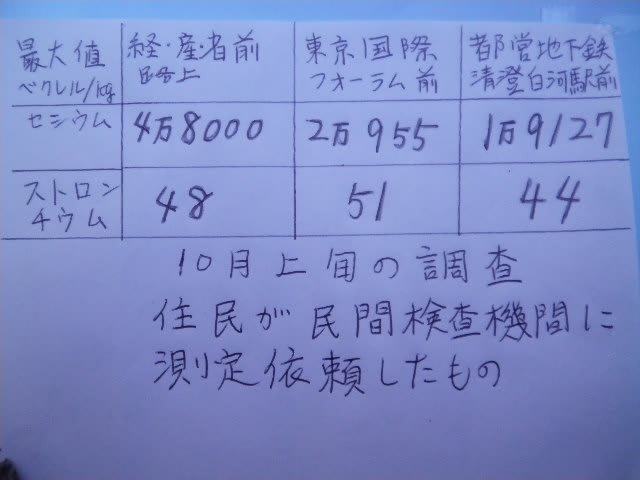 最大値 ベクレル/kg
経・産・省前 路上
東京国際フォーラム前
都営地下鉄 清澄白河駅前
セシウム 4万8000 2万955 1万9127
ストロンチウム 48 51 44
10月上旬の調査
住民が民間検査機間に
測定依頼したもの